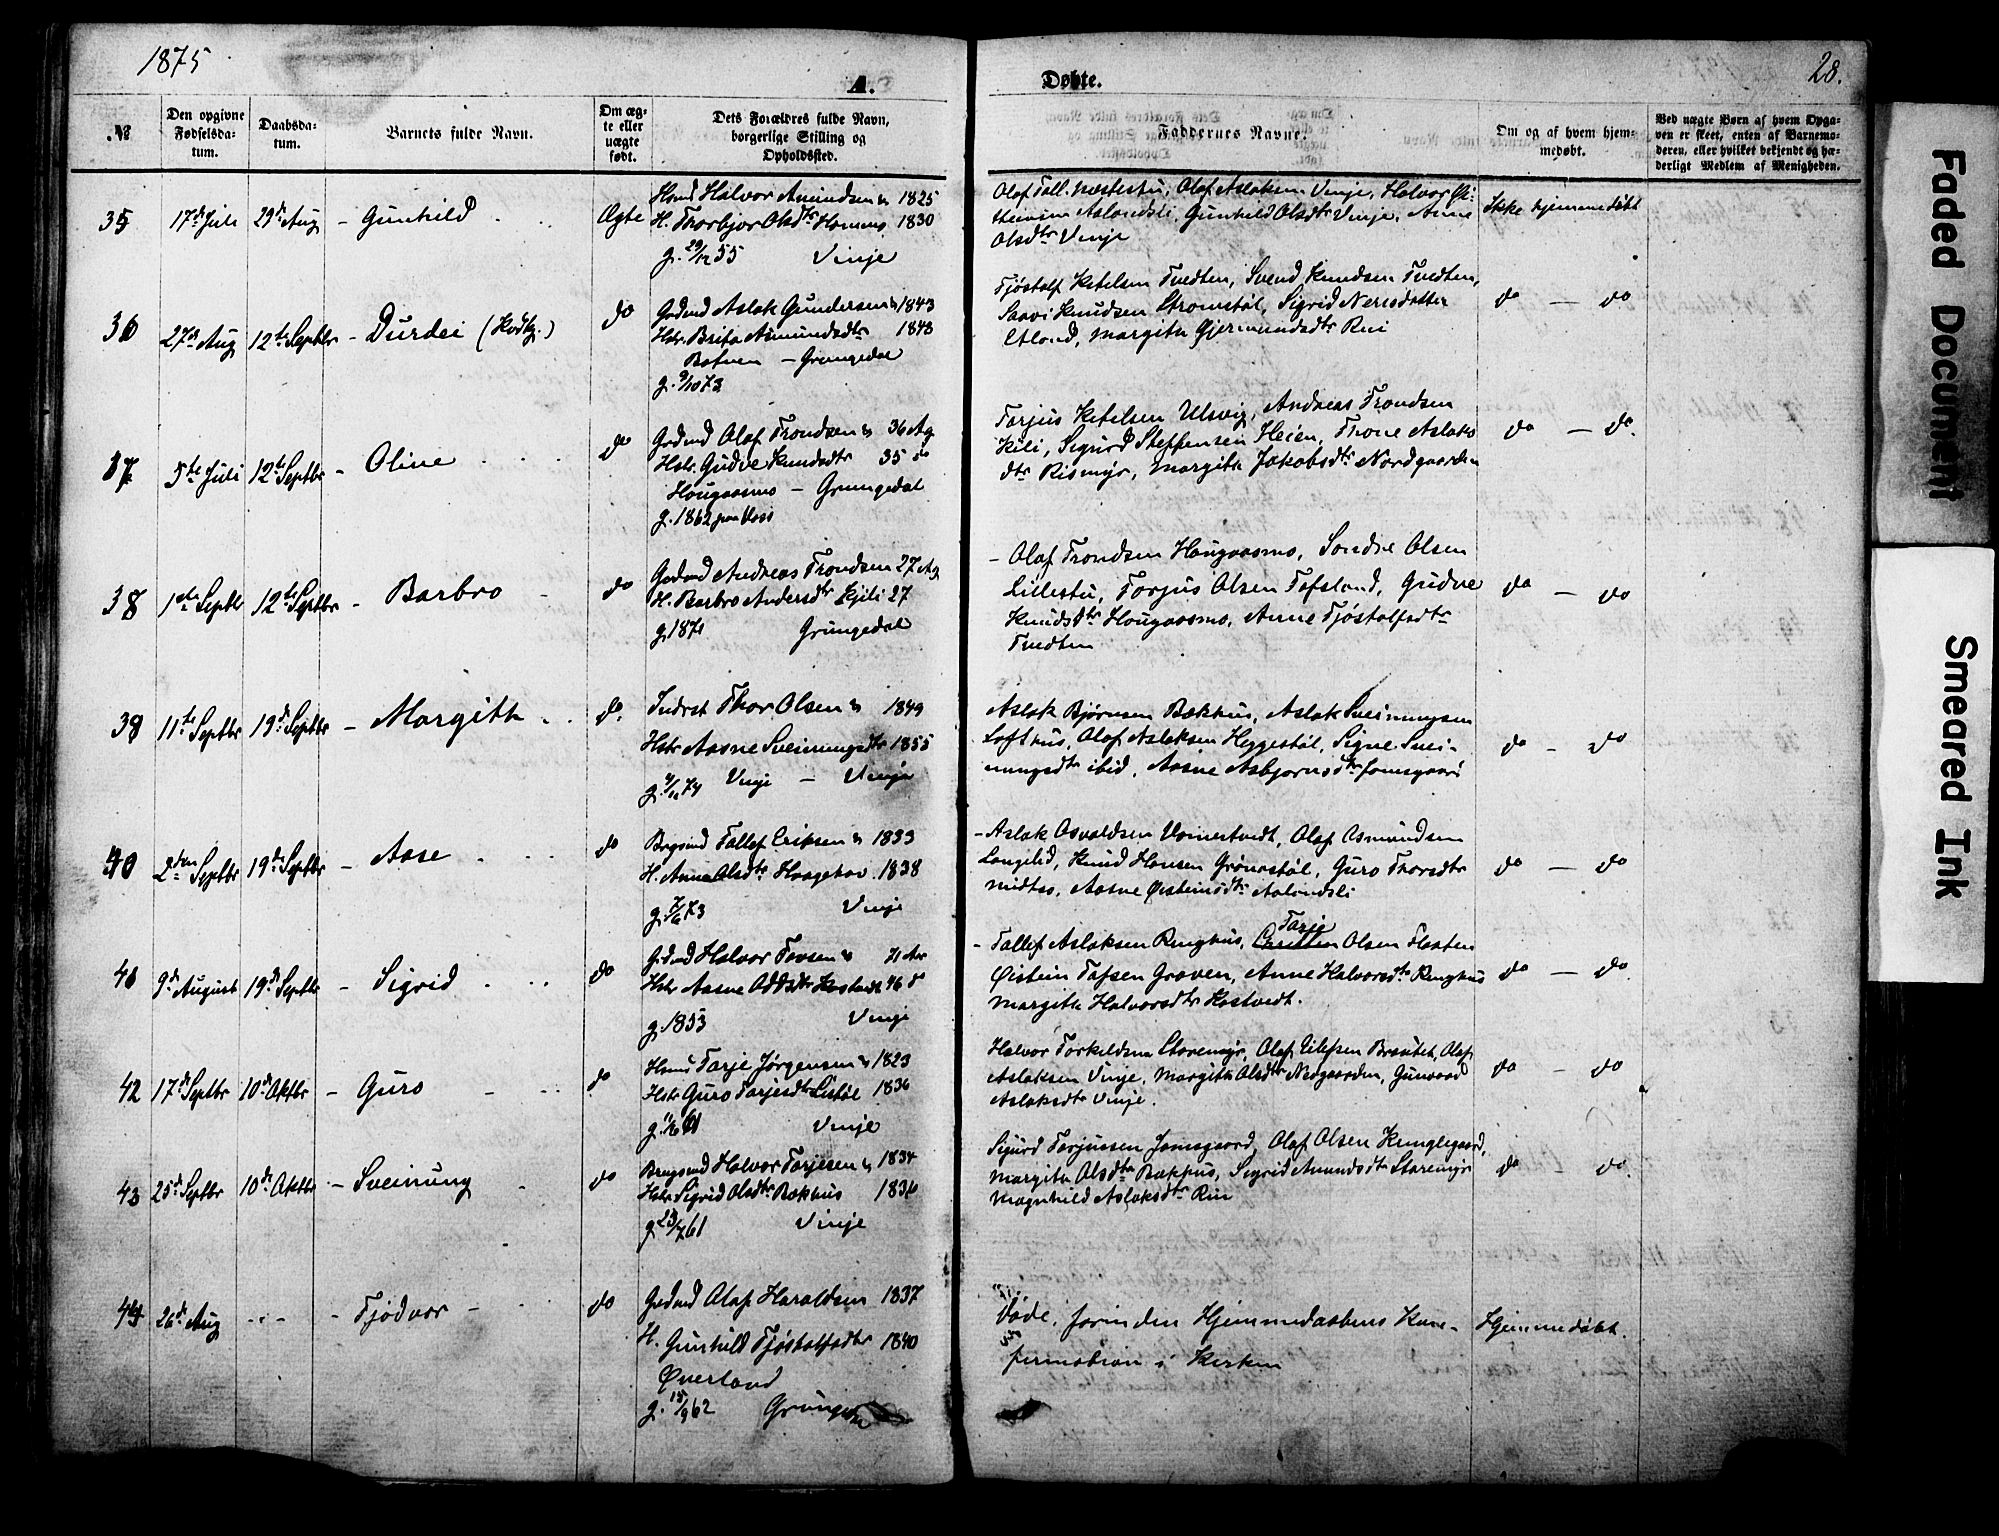 1875
A. Døbte.
28.
№
Den opgivne Fødselsdatum.
Daabsdatum.
Barnets fulde Navn.
Om ægte eller uægte født.
Dets Forældres fulde Navn, borgerlige Stilling og Opholdssted.
Faddernes Navne.
Om og af hvem hjemmedøbt.
Ved uægte Børn af hvem Opgaven er skeet, enten af Barnemoderen, eller hvilket bekjendt og hæderligt Medlem af Menigheden.
35 17de Juli 29de Aug - Gunhild Ægte
Halvor Amundsen 1825
H. Thorbjør Olsdtr 1830
g. 29/12 55 Vinje
Olaf Aslaksen Vinje, Halvor
Gunhild Olsdtr Vinje, Anne
Olsdtr Vinje
Ikke hjemmedøbt
36 27de Aug 12te Septbr - Durdei do
Aslak Gundersen 1843
Hstr. Brita Asmundsdtr 1848
Botnen - Grungedal
g. 9/10 73
Tjøstolf Ketelsen Tvedten, Svend Knudsen Tvedten,
Saavi Knudsen Strømstøl, Sigrid Neresdatter
Margith Gjermundsdtr Rui
do - do
37 5te Juli 12te Septbr - Oline do
Grdmd Olaf Trondsen 36 Aar
Hstr. Gudve Knudsdtr 35 do
Hougaasmo - Grungedal
g. 1862 paa Voss
Torjus Ketelsen Ulsvig, Andreas Trondsen
Kili, Sigurd Steffensen Heien, Thone Aslaks
dtr Rismyr, Margith Jakobsdtr Nordgaarden
do - do.
38 1ste Septbr 12te Septbr - Barbro do
Grdmd Andreas Trondsen 27 Aar
H. Barbro Andersdtr Kjili 27
g. 1871 Grungedal
- Olaf Trondsen Hougaasmo, Sondre Olsen
Lillestu, Torjus Olsen Tofsland, Gudve
Knudsdtr Hougaasmo, Anne Tjøstolfsdtr
Tvedten
do - do
39 11te Septbr 19de Septbr - Margith do.
Inderst Thor Olsen 1849
Hstr Aasne Sveinungsdtr 1855
74 Vinje - Vinje
Aslak Bjørnsen Bækhus, Aslak Sveinungsen
Lofthus, Olaf Aslaksen Heggestøl, Signe Svei-
nungsdtr ibid, Aasne Asbjørnsdtr Jamsgaard
do - do
40 2den Septbr 19de Septbr - Aase do
Tallef Eriksen 1833
H. Anne Olsdtr Haagehov 1838
g. 7/6 73 Vinje
- Aslak Osvaldsen Vaamertvedt, Olaf Osmundsen
Langelid, Knud Hansen Grønestøl, Guro Thorsdtr
Midtbø, Aasne Øisteinsdtr Aalandsli
do - do
41 9de August 19de Septbr - Sigrid do
Grdmd Halvor Tovsen
Hstr Aasne Oddsdtr Kostvedt 46 do
g. 1853 Vinje
Tarje
- Tallef Aslaksen Ringhus, Olsen Flaten
Øistein Tofsen Graven, Anne Halvorsdtr Ringhus
Margith Halvorsdtr Kostvedt.
do - do
42 17de Septbr 10de Oktbr - Guro do
Tarje Jørgensen 1823
Hstr Guro Tarjesdtr Listøl 1836
61 Vinje
Halvor Torkildsen Storemyr, Olaf Eilefsen Brautet, Olaf
Aslaksen Vinje, Margith Olsdtr Nedgaarden, Gunvaar
Aslaksdtr Vinje.
do - do
43 25de Septbr 10de Oktbr - Sveinung do
Halvor Tarjesen 1834
Hstr Sigrid Olsdtr Bækhus 1836
g. 23/7 61 Vinje
Sigurd Torjussen Jamsgaard, Olaf Olsen Kringlegaard,
Margith Olsdtr Bækhus, Sigrid Amundsdtr Storemyr
Magnhild Aslaksdtr Rui
do - do
44 26de Aug - Tjødvor - do
Grdmd Olaf Haraldsen 1837
H. Gunhild Tjøstolfsdtr 1840
Øverland
g. 15/9 62 Grungedal
Døde, forinden Hjemmedaabens Kon-
firmation i Kirken
Hjemmedøbt.
Faded Document
Smeared Ink